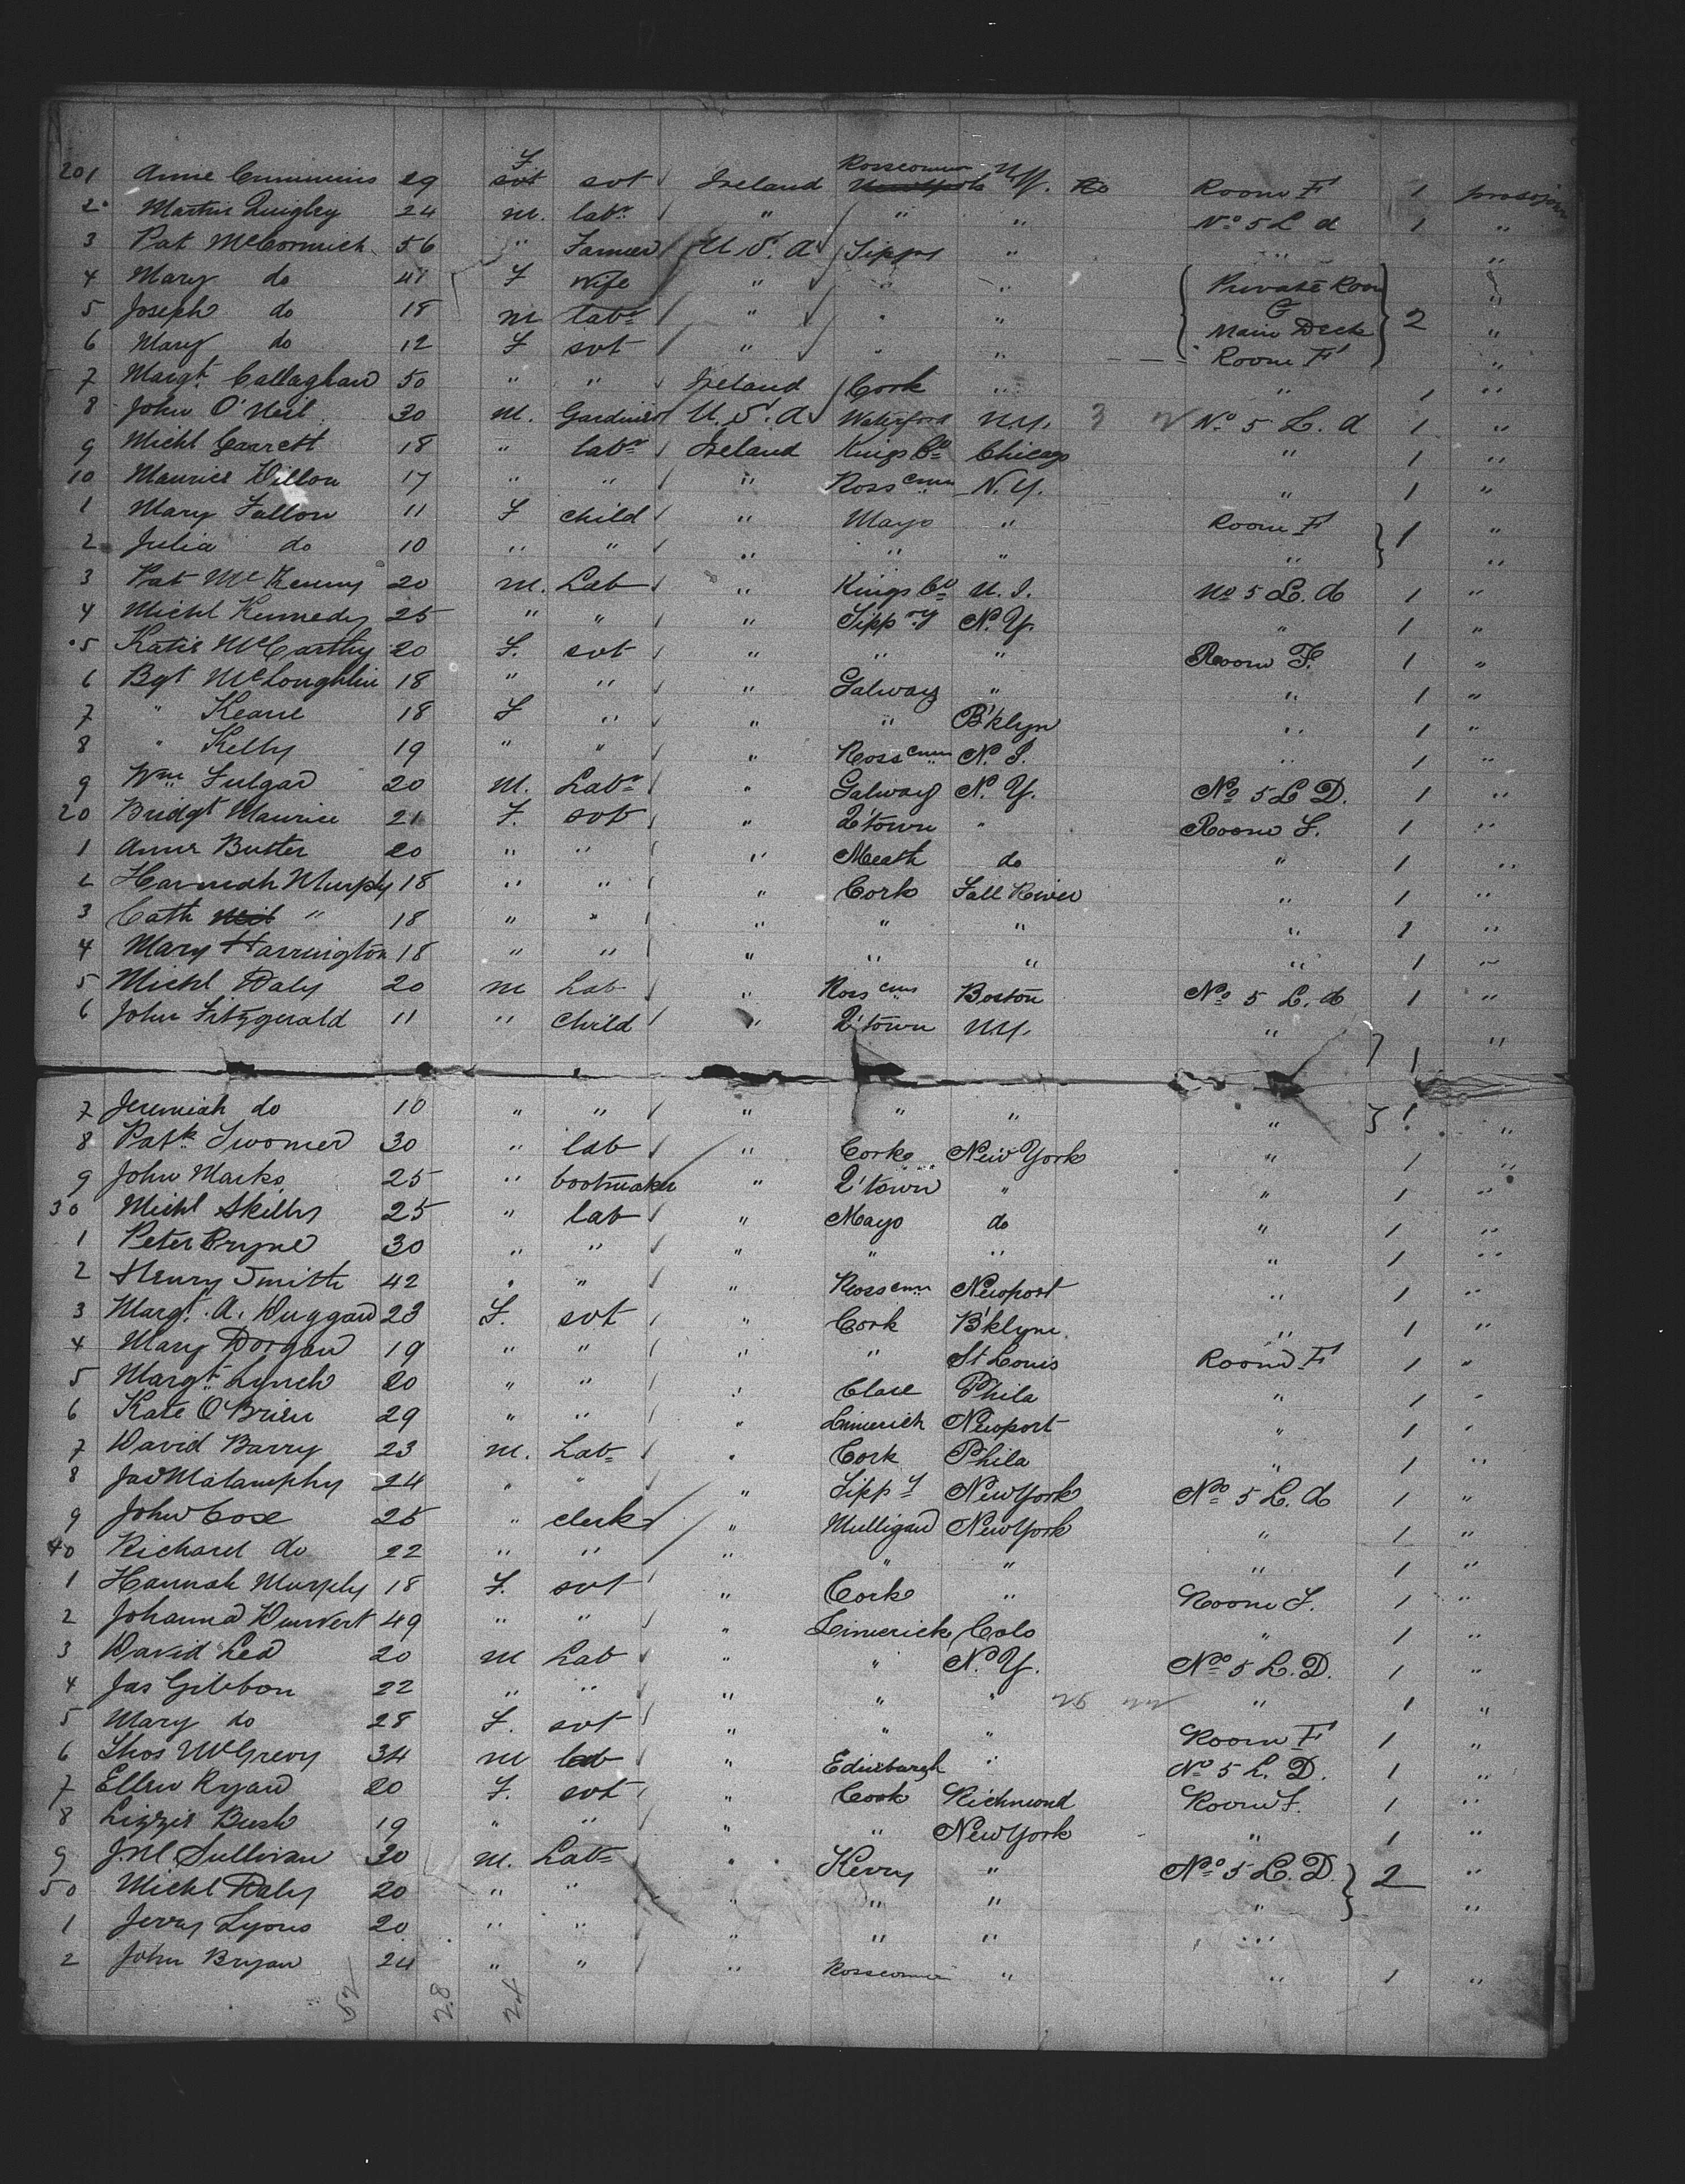 201 Anne Cummins 29 F svt svt Ireland Rosscomm N.Y. Room F 1
2 Martin Quigley 24 m. labr " " " No 5 L d 1 "
3 Pat McCormick 56 " Farmer U.S.A Tippy " " "
4 Mary do 41 F Wife " " " Private Room "
5 Joseph do 18 m labr " " " G Main Deck 2 "
6 Mary do 12 F svt " " " Room F "
7 Margt Callaghan 50 " " Ireland Cork " " 1 "
8 John O'Neil 30 m. Gardiner U.S.A Waterford N.Y. 3 No 5 L. d 1 "
9 Michl Garrett 18 " labr Ireland Kings Co Chicago " 1 "
10 Maurice Dillon 17 " " " Ross cmn N.Y. " 1 "
1 Mary Fallon 11 F child " Mayo " Room F 1 "
2 Julia do 10 " " " " " " "
3 Pat McKenny 20 m. Lab " Kings Co N. J. No 5 L. d 1 "
4 Michl Kennedy 25 " " " Tipp ry N.Y. " 1 "
5 Katie McCarthy 20 F. svt " " " Room F. 1 "
6 Bgt McLoughlin 18 " " " Galway " " 1 "
7 " Keane 18 F " " " B'klyn " 1 "
8 " Kelly 19 " " " Ross cmn N. J. " 1 "
9 Wm Fulgar 20 M. Labr " Galway N.Y. No 5 L D. 1 "
20 Bridgt Maurice 21 F. svt " Q'town " Room F. 1 "
1 Anne Butter 20 " " " Meath do " 1 "
2 Hannah Murphy 18 " " " Cork Fall River " 1 "
3 Cath Neil " 18 " " " " " " 1 "
4 Mary Harrington 18 " " " " " " 1 "
5 Michl Daly 20 m Lab " Ross cmn Boston No 5 L. d 1 "
6 John Fitzgerald 11 " child " Q'town N.Y. " 1 "
7 Jeremiah do 10 " " " " " " 1 "
8 Patk Twomed 30 " lab " Cork New York " 1 "
9 John Marks 25 " bootmaker " Q'town " " 1 "
30 Michl Skelly 25 " lab " Mayo do " 1 "
1 Peter Bryne 30 " " " " " " 1 "
2 Henry Smith 42 " " " Ross cmn Newport " 1 "
3 Margt. A. Duggan 23 F. svt " Cork B'klyn. " 1 "
4 Mary Dorgan 19 " " " " St Louis Room F 1 "
5 Margt Lynch 20 " " " Clare Phila " 1 "
6 Kate O'Brien 29 " " " Limerick Newport " 1 "
7 David Barry 23 m. Lab " Cork Phila " 1 "
8 Jas Malamphy 24 " " " Tipp y New York No 5 L. d 1 "
9 John Cox 25 " clerk " Mulligan New York " 1 "
40 Richard do 22 " " " " " " 1 "
1 Hannah Murphy 18 F. svt " Cork " Room F. 1 "
2 Johanna 49 " " " Limerick Colo " 1 "
3 David Lea 20 m Lab " " N.Y. No 5 L. D. 1 "
4 Jas Gibbon 22 " " " " " 26 " 1 "
5 Mary do 28 F. svt " " " Room F 1 "
6 Thos McGrevy 34 m lab " Edinburgh " No 5 L. D. 1 "
7 Ellen Ryan 20 F. svt " Cork Richmond Room F. 1 "
8 Lizzie Bush 19 " " " " New York " 1 "
9 J.M. Sullivan 30 m. Lab " Kerry " No 5 L. D. 2 "
50 Michl Daly 20 " " " " " " "
1 Jerry Lyons 20 " " " " " "
2 John Bryan 24 " " " Rosscomn " " 1 "
52 28 24